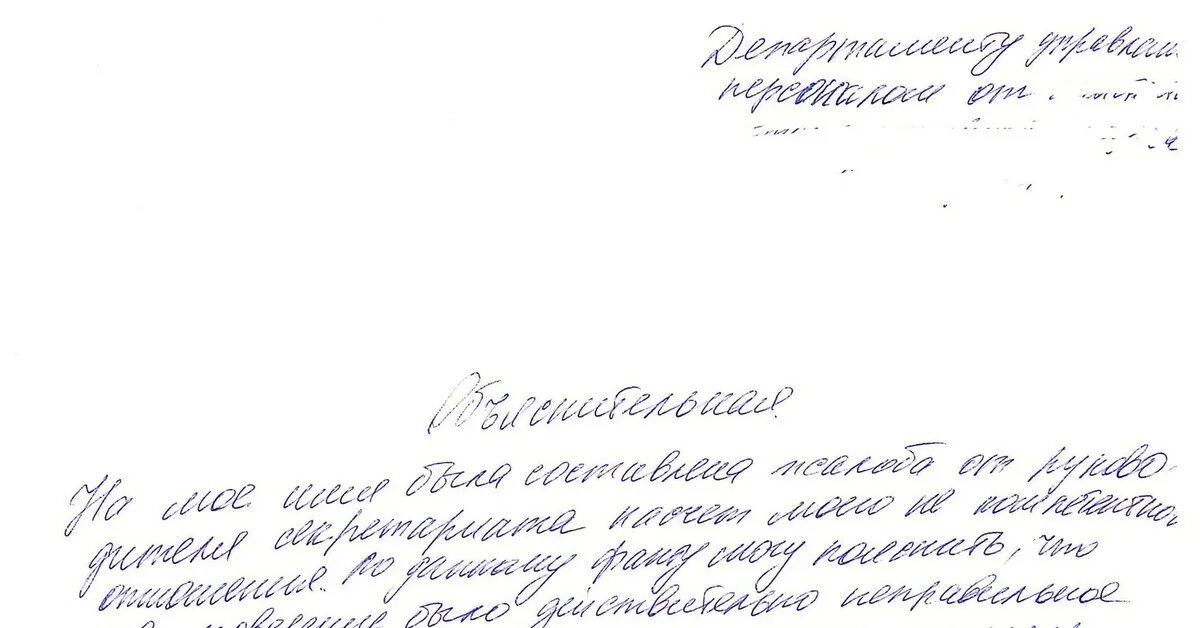 Департаменту управлен
персоналом от
Объяснительная
На мое имя была составлена жалоба от руково-
дителя секретариата насчет моего не компетентно
отношения. По данному факту могу пояснить, что
было действительно неправильное